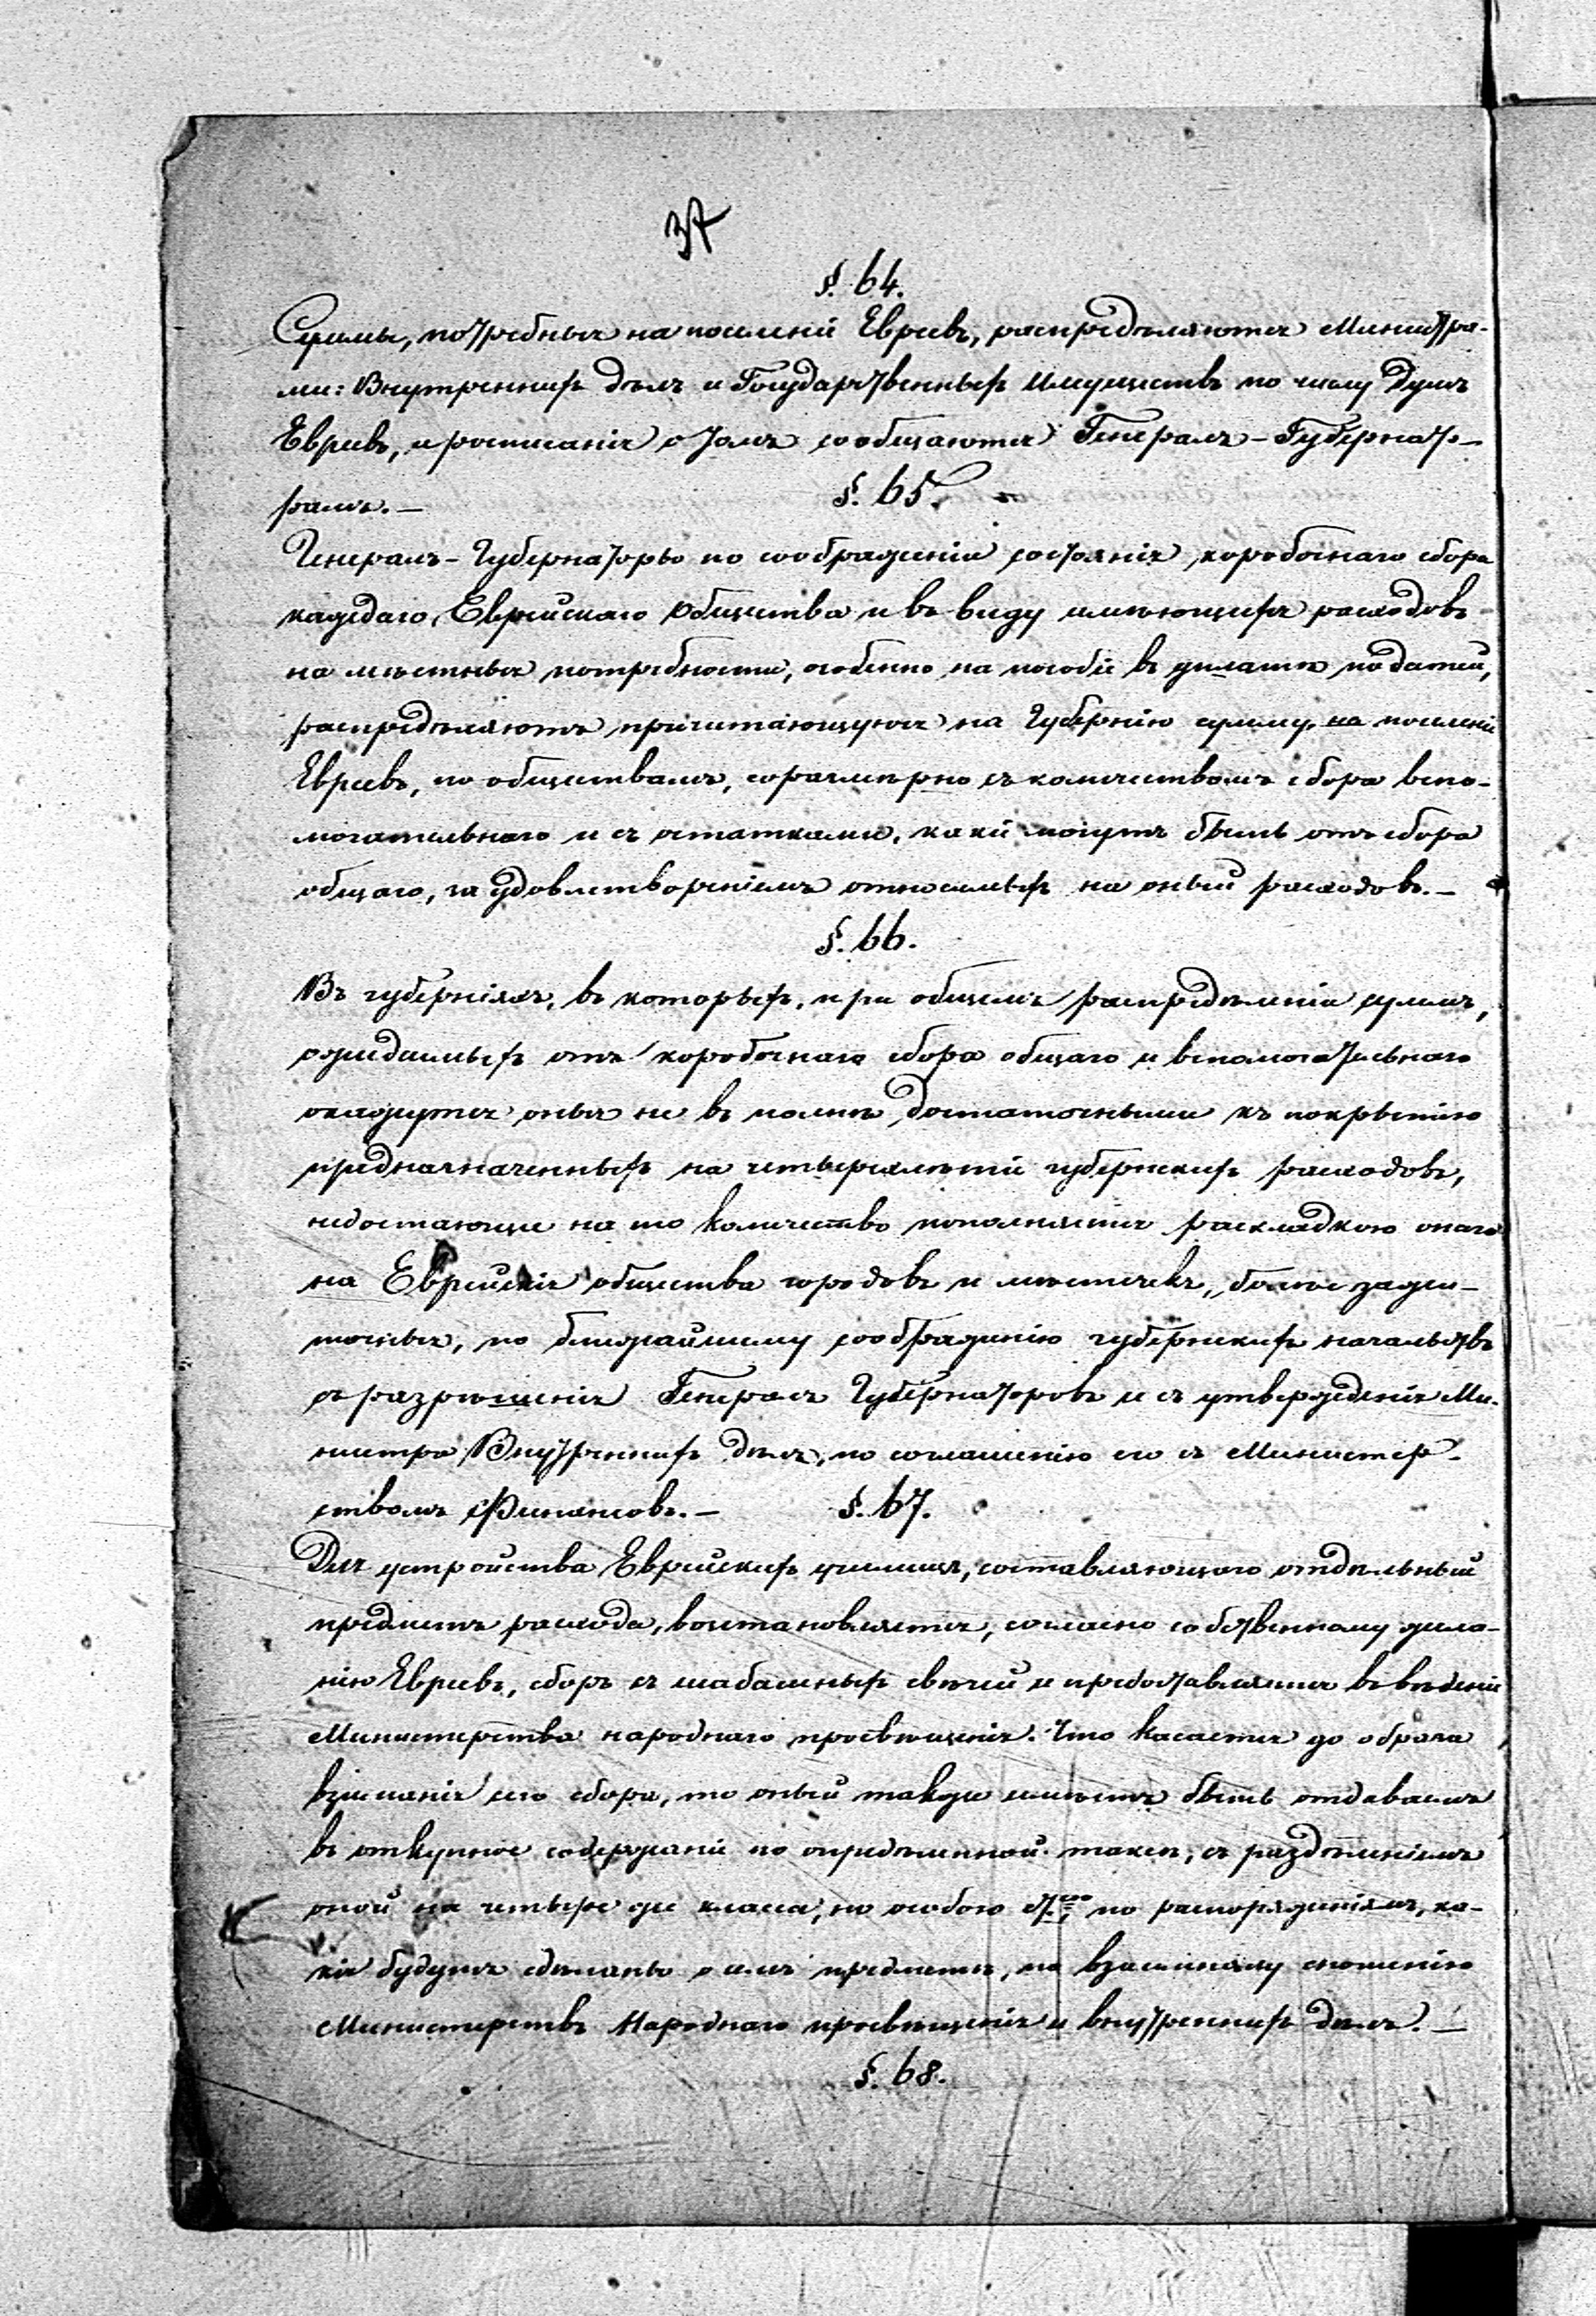 §. 64.
Суммы, потребныя на поселеніе Евреевъ, распредѣляются Министра-
ми: Внутреннихъ дѣлъ и Государственныхъ Имуществъ по числу душъ
Евреевъ, и росписанія о томъ сообщаются Генералъ-Губернато-
рамъ. —
§. 65.
Генералъ-Губернаторы по соображеніи состоянія коробочнаго сбора
каждаго Еврейскаго Общества и въ виду имѣющихся расходовъ
на мѣстныя потребности, особенно на пособіе въ уплатѣ податей,
распредѣляютъ причитающуюся на Губернію сумму, на поселеніе
Евреевъ, по обществамъ, соразмѣрно съ количествомъ сбора вспо-
могательнаго и съ остатками, какіе могутъ быть отъ сбора
общаго, за удовлетвореніемъ относимыхъ на оный расходовъ. —
§. 66.
Въ губерніяхъ, въ которыхъ, при общемъ распредѣленіи суммъ,
ожидаемыхъ отъ коробочнаго сбора общаго и вспомогательнаго
окажутся оныя не въ полнѣ достаточными къ покрытію
предназначенныхъ на четырехлѣтіе губернскихъ расходовъ,
недостающее на то количество пополняется раскладкою онаго
на Еврейскія общества городовъ и мѣстечекъ, болѣе зажи-
точныя, по ближайшему соображенію губернскихъ начальствъ
съ разрѣшенія Генералъ Губернаторовъ и съ утвержденія Ми-
нистра Внутреннихъ дѣлъ, по соглашенію его съ Министер-
ствомъ Финансовъ. —
§. 67.
Для устройства Еврейскихъ училищъ, составляющаго отдѣльный
предметъ расхода, возстановляется, согласно собственному жела-
нію Евреевъ, сборъ съ шабашныхъ свѣчей и предоставляется въ вѣденіе
Министерства народнаго просвѣщенія. Что касается до образа
взиманія сего сбора, то оный также имѣетъ быть отдаваемъ
въ откупное содержаніе по опредѣленной таксѣ, съ раздѣленіемъ
оной на четыре же класса, но особою по распоряженіямъ, ка-
кія будутъ сдѣланы о семъ предметѣ, по взаимному сношенію
Министерствъ Народнаго просвѣщенія и внутреннихъ дѣлъ. —
§. 68.